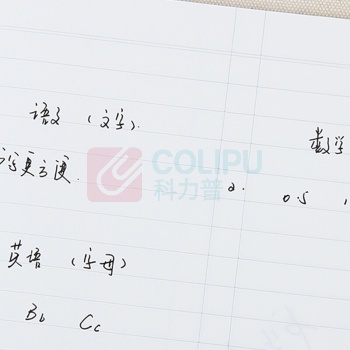 语文（文字）.
数学
写更方便.
COLIPU
科力普
2.
0.5
英语（字母）
Bb Cc